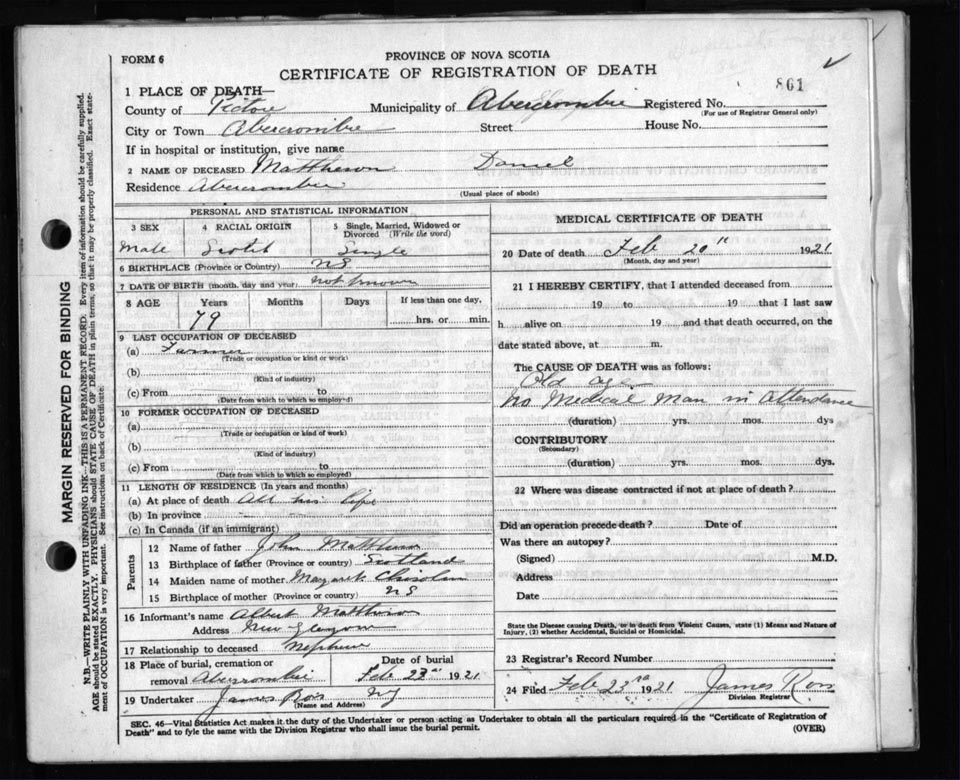 FORM 6
PROVINCE OF NOVA SCOTIA
CERTIFICATE OF REGISTRATION OF DEATH
861
1 PLACE OF DEATH—
County of Pictou Municipality of Abercrombie Registered No.
(For use of Registrar General only)
City or Town Abercrombie Street House No.
If in hospital or institution, give name
2 NAME OF DECEASED Mattheson Daniel
Residence Abercrombie
(Usual place of abode)
PERSONAL AND STATISTICAL INFORMATION
3 SEX 4 RACIAL ORIGIN 5 Single, Married, Widowed or Divorced (Write the word)
Male Scotch Single
6 BIRTHPLACE (Province or Country) NS
7 DATE OF BIRTH (month, day and year) not known
8 AGE Years Months Days If less than one day,
79 hrs. or min.
9 LAST OCCUPATION OF DECEASED
(a) Farmer
(Trade or occupation or kind or work)
(b)
(Kind of industry)
(c) From to
(Date from which to which so employed)
10 FORMER OCCUPATION OF DECEASED
(a)
(Trade or occupation or kind of work)
(b)
(Kind of industry)
(c) From to
(Date from which to which so employed)
11 LENGTH OF RESIDENCE (In years and months)
(a) At place of death All his life
(b) In province
(c) In Canada (if an immigrant)
Parents
12 Name of father John Mattheson
13 Birthplace of father (Province or country) Scotland
14 Maiden name of mother Margaret Chisolm
15 Birthplace of mother (Province or country) NS
16 Informant's name Albert Mattheson
Address New Glasgow
17 Relationship to deceased Nephew
18 Place of burial, cremation or removal Abercrombie Date of burial Feb 23rd 1921
19 Undertaker James Ross
(Name and Address)
MEDICAL CERTIFICATE OF DEATH
20 Date of death Feb 20th 1921
(Month, day and year)
21 I HEREBY CERTIFY, that I attended deceased from
19 to 19 that I last saw
h alive on 19 and that death occurred, on the
date stated above, at m.
The CAUSE OF DEATH was as follows:
Old age
No Medical Man in attendance
(duration) yrs. mos. dys
CONTRIBUTORY
(Secondary)
(duration) yrs. mos. dys.
22 Where was disease contracted if not at place of death?
Did an operation precede death? Date of
Was there an autopsy?
(Signed) M.D.
Address
Date
State the Disease causing Death, or in Death from Violent Causes, state (1) Means and Nature of
Injury, (2) whether Accidental, Suicidal or Homicidal.
23 Registrar's Record Number
24 Filed Feb 23rd 1921 James Ross
Division Registrar
SEC. 46—Vital Statistics Act makes it the duty of the Undertaker or person acting as Undertaker to obtain all the particulars required in the "Certificate of Registration of
Death" and to fyle the same with the Division Registrar who shall issue the burial permit.
(OVER)
MARGIN RESERVED FOR BINDING
N.B.—WRITE PLAINLY WITH UNFADING INK—THIS IS A PERMANENT RECORD: Every item of information should be carefully supplied.
AGE should be stated EXACTLY. PHYSICIANS should STATE CAUSE OF DEATH in plain terms, so that it may be properly classified. Exact state-
ment of OCCUPATION is very important. See instructions on back of Certificate.